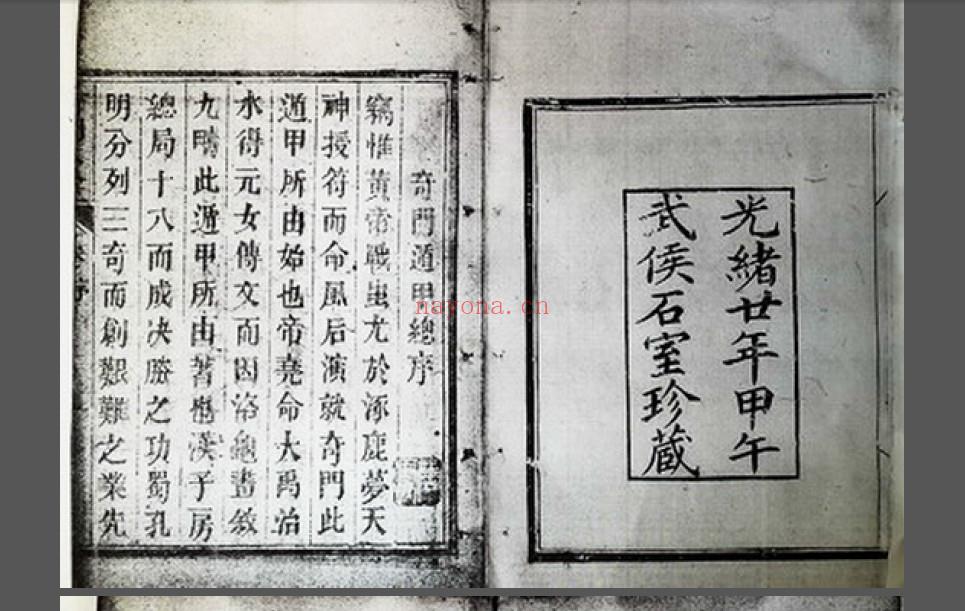 光緒廿年甲午
武侯石室珍藏
奇門遁甲總序
竊惟黃帝戰蚩尤於涿鹿夢天
神授符而命風后演就奇門此
遁甲所由始也帝堯命大禹治
水得元女傳文而因洛龜畫敘
九疇此遁甲所由著也漢子房
總局十八而成决勝之功蜀孔
明分列三奇而創艱難之業先
nayona.cn